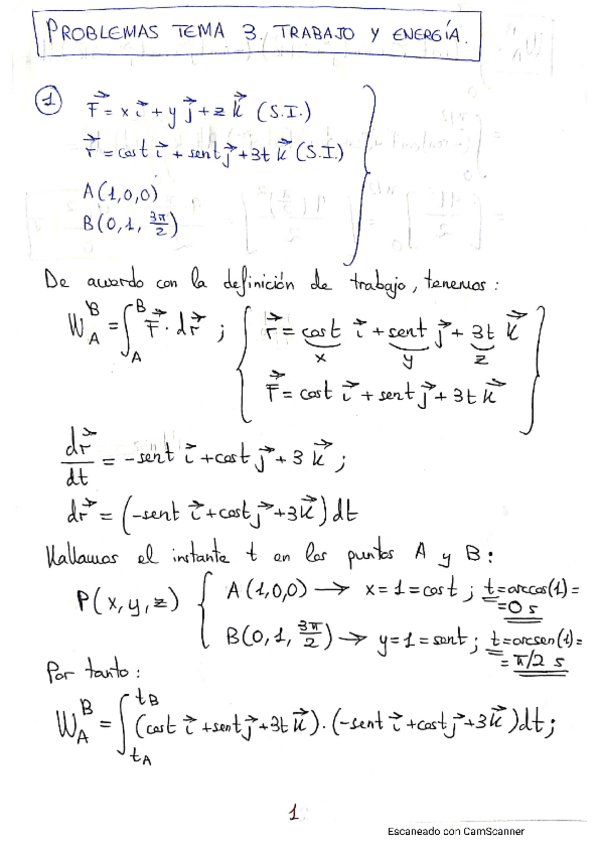 PROBLEMAS TEMA 3. TRABAJO Y ENERGÍA.
① F⃗ = x i⃗ + y j⃗ + z k⃗ (S.I.)
r⃗ = cost i⃗ + sent j⃗ + 3t k⃗ (S.I.)
A(1,0,0)
B(0,1, 3π/2)
De acuerdo con la definición de trabajo, tenemos:
W_A^B = ∫_A^B F⃗ · dr⃗ ; { r⃗ = cost i⃗ + sent j⃗ + 3t k⃗
x y z
F⃗ = cost i⃗ + sent j⃗ + 3t k⃗ }
dr⃗/dt = -sent i⃗ + cost j⃗ + 3 k⃗ ;
dr⃗ = (-sent i⃗ + cost j⃗ + 3k⃗) dt
Hallamos el instante t en los puntos A y B:
P(x,y,z) { A(1,0,0) → x=1=cost ; t=arccos(1)=
=0 s
B(0,1, 3π/2) → y=1=sent ; t=arcsen(1)=
= π/2 s
Por tanto:
W_A^B = ∫_{t_A}^{t_B} (cost i⃗ + sent j⃗ + 3t k⃗) · (-sent i⃗ + cost j⃗ + 3k⃗) dt ;
1
Escaneado con CamScanner